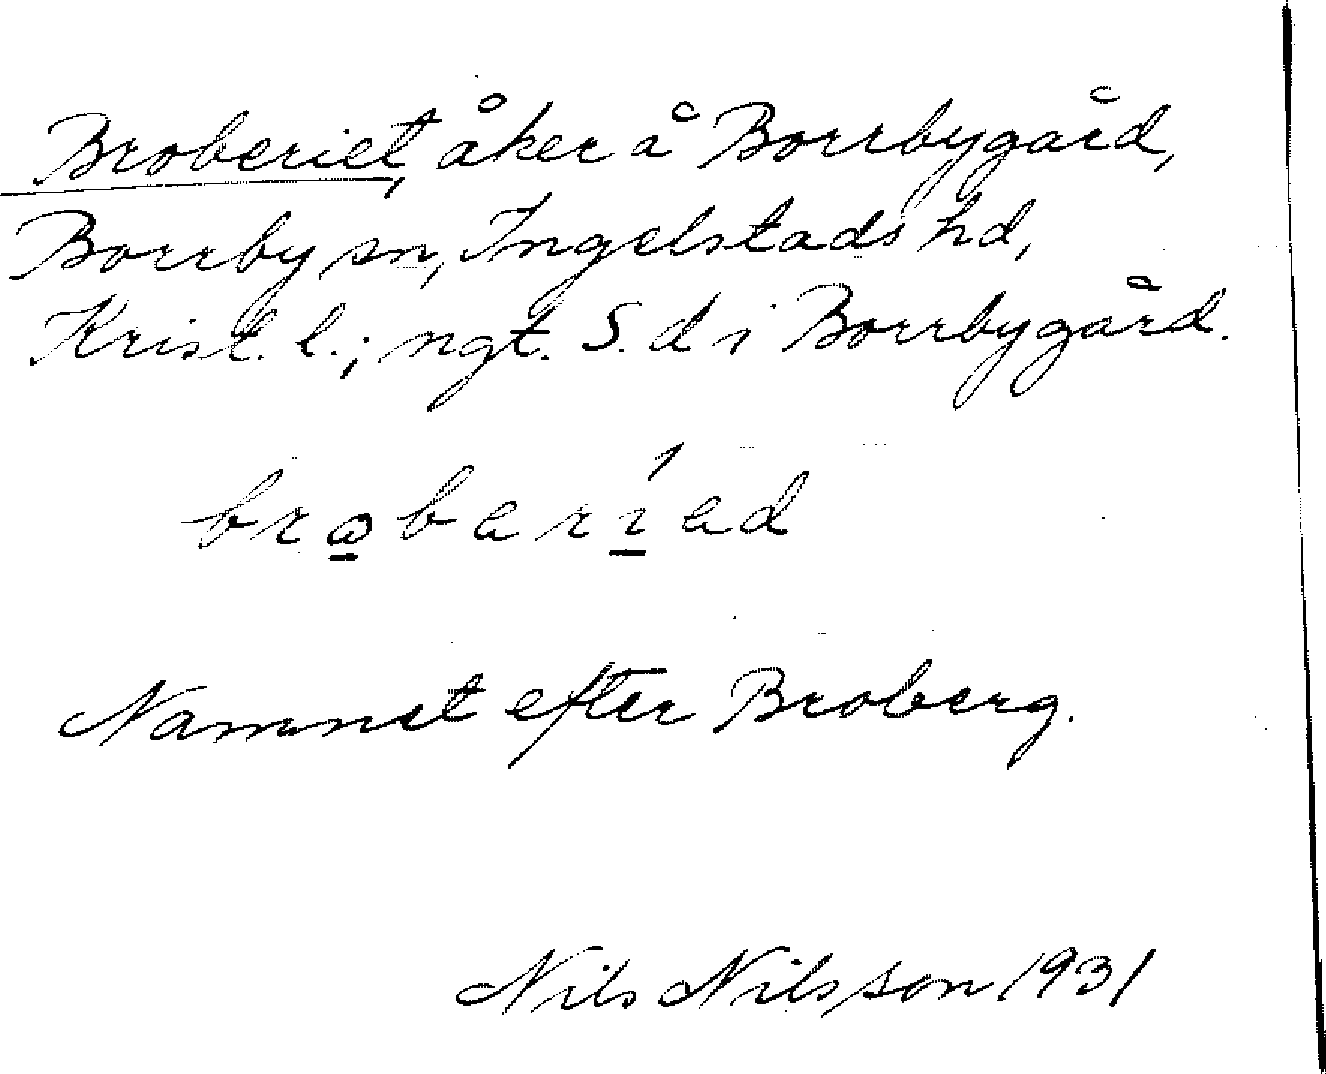 Broberiet, åker å Borrbygård,
Borrby sn, Ingelstads hd,
Krist. l.; ngt. S. d i Borrbygård.
brobaríad
Namnet efter Broberg.
Nils Nilsson 1931